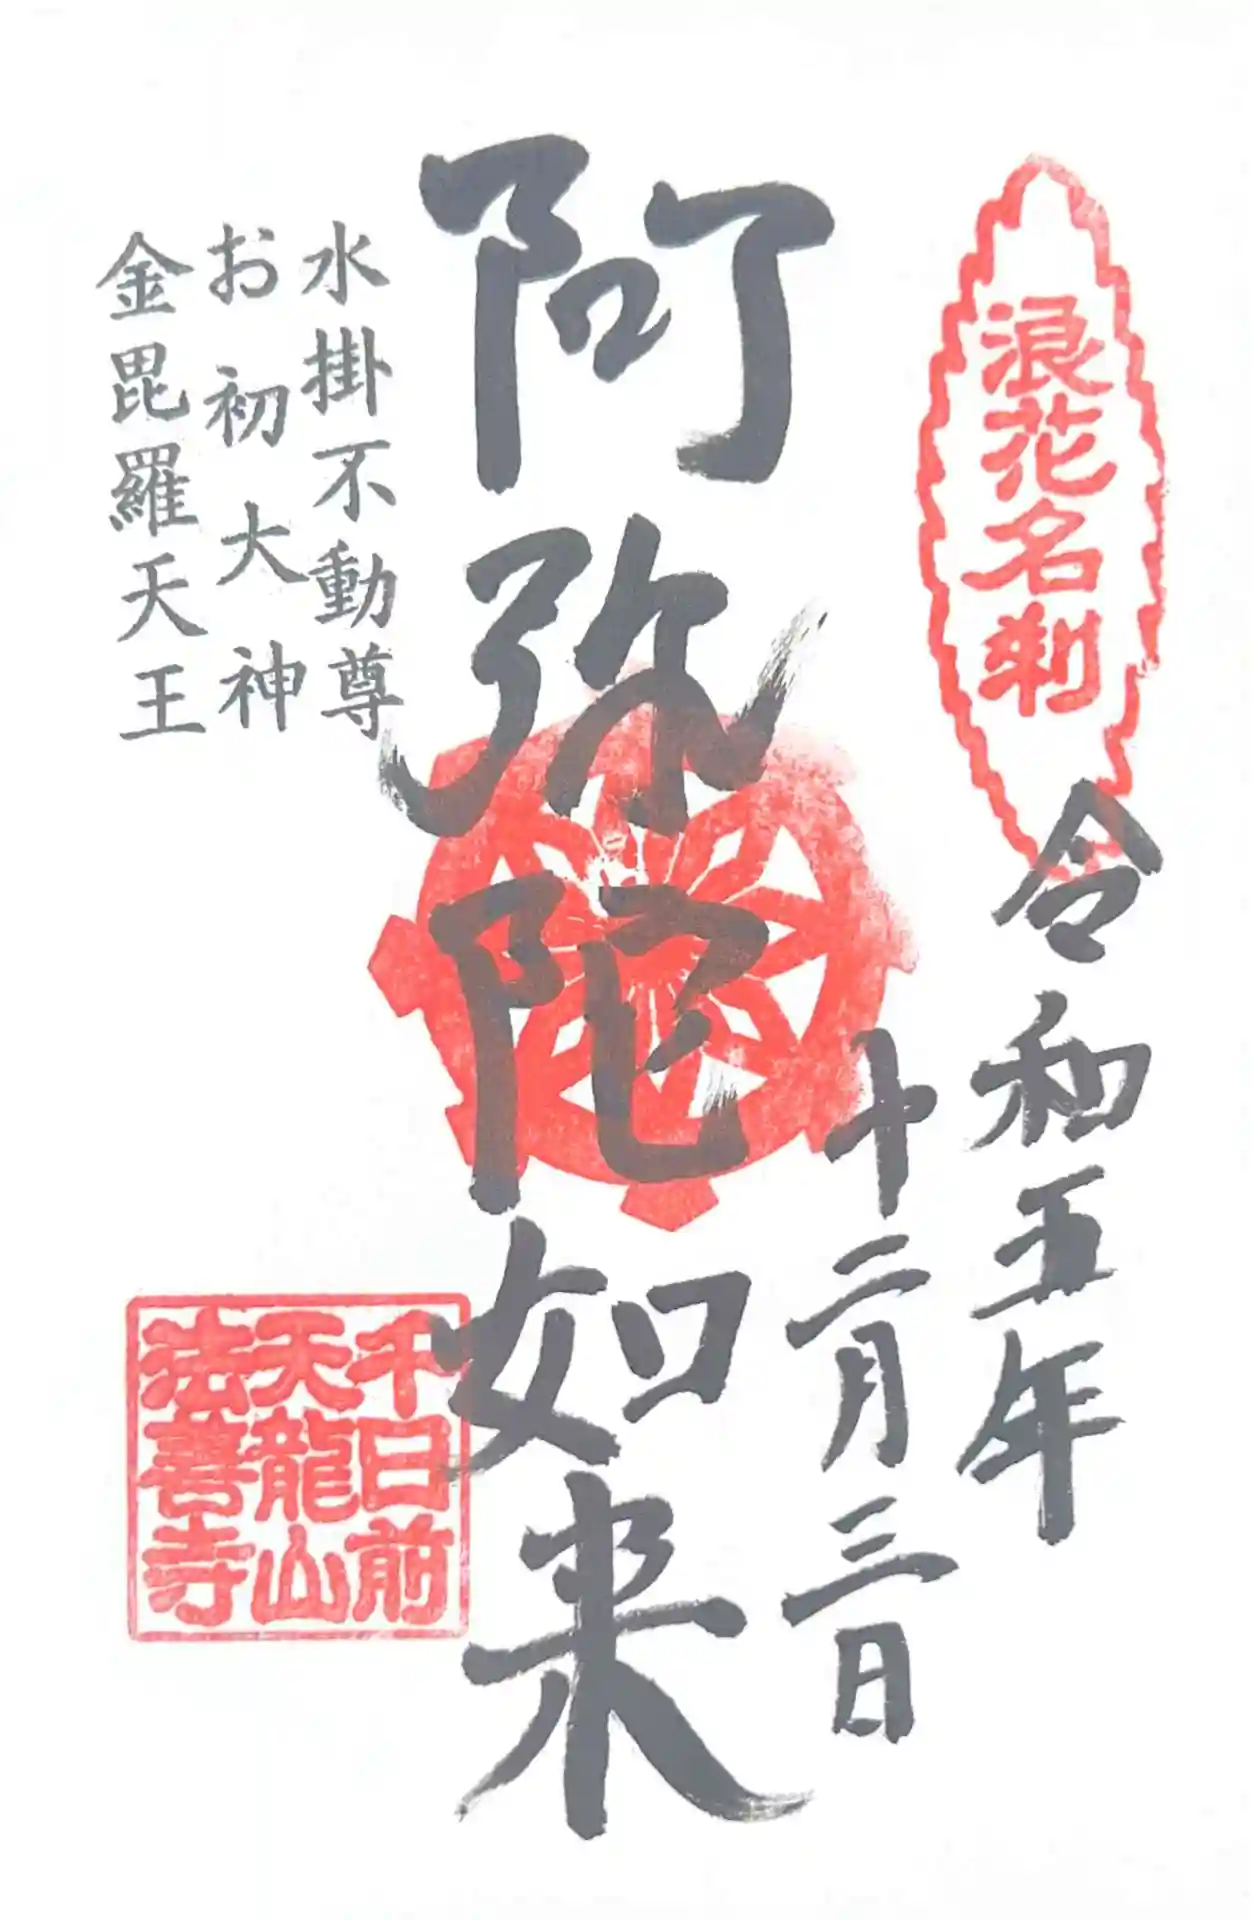 浪花名刹
令和五年
十二月三日
阿弥陀如来
水掛不動尊
お初大神
金毘羅天王
千日前
天龍山
法善寺